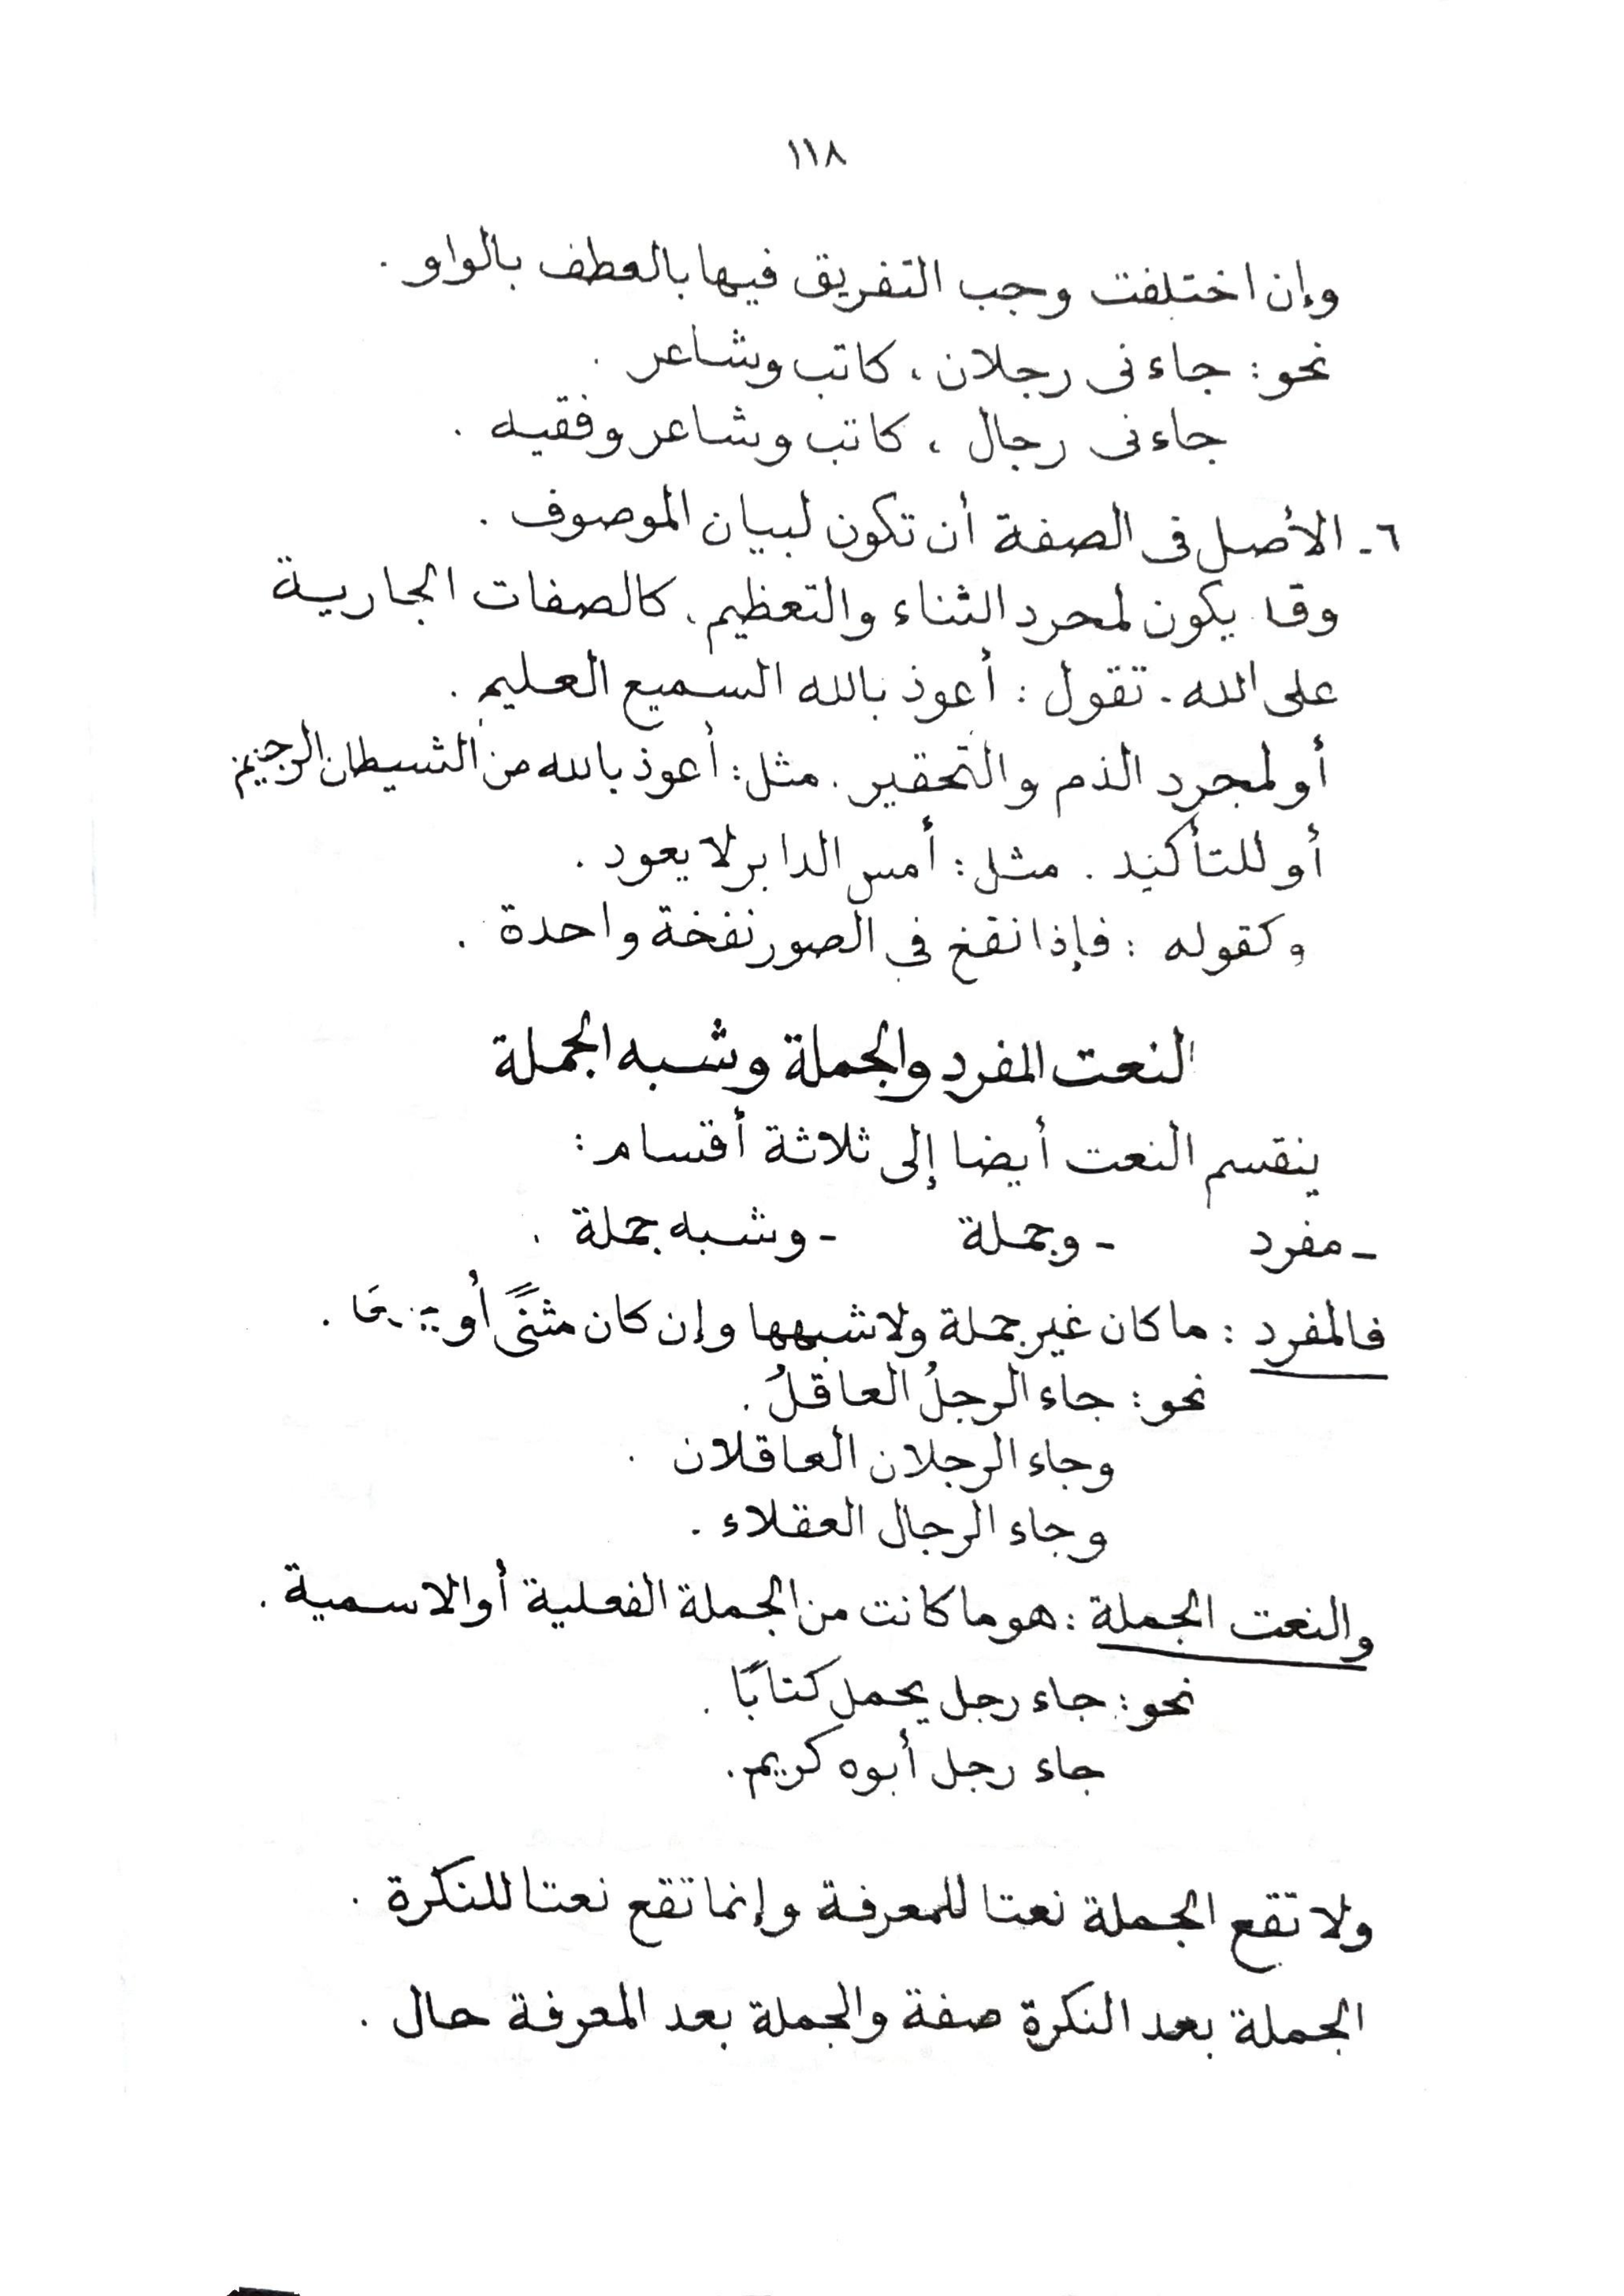 ١١٨
وإن اختلفت وجب التفريق فيها بالعطف بالواو .
نحو : جاءنى رجلان ، كاتب وشاعر .
جاءنى رجال ، كاتب وشاعر وفقيه .
٦- الأصل فى الصفة أن تكون لبيان الموصوف .
يكون لمجرد الثناء والتعظيم . كالصفات الجارية
على الله . تقول : أعوذ بالله السميع العليم .
أو لمجرد الذم والتحقير . مثل : أعوذ بالله من الشيطان الرجيم
أو للتأكيد . مثل : أمس الدابر لا يعود .
وكقوله : فإذا نفخ فى الصور نفخة واحدة .
النعت المفرد والجملة وشبه الجملة
ينقسم النعت أيضا إلى ثلاثة أقسام :
- مفرد - وجملة - وشبه جملة .
فالمفرد : ما كان غير جملة ولا شبهها وإن كان مثنًى أو .
نحو : جاء الرجلُ العاقلُ .
وجاء الرجلان العاقلان .
وجاء الرجال العقلاء .
والنعت الجملة : هو ما كانت من الجملة الفعلية أو الاسمية .
نحو : جاء رجل يحمل كتابًا .
جاء رجل أبوه كريم .
ولا تقع الجملة نعتا للمعرفة وإنما تقع نعتا للنكرة .
الجملة بعد النكرة صفة والجملة بعد المعرفة حال .